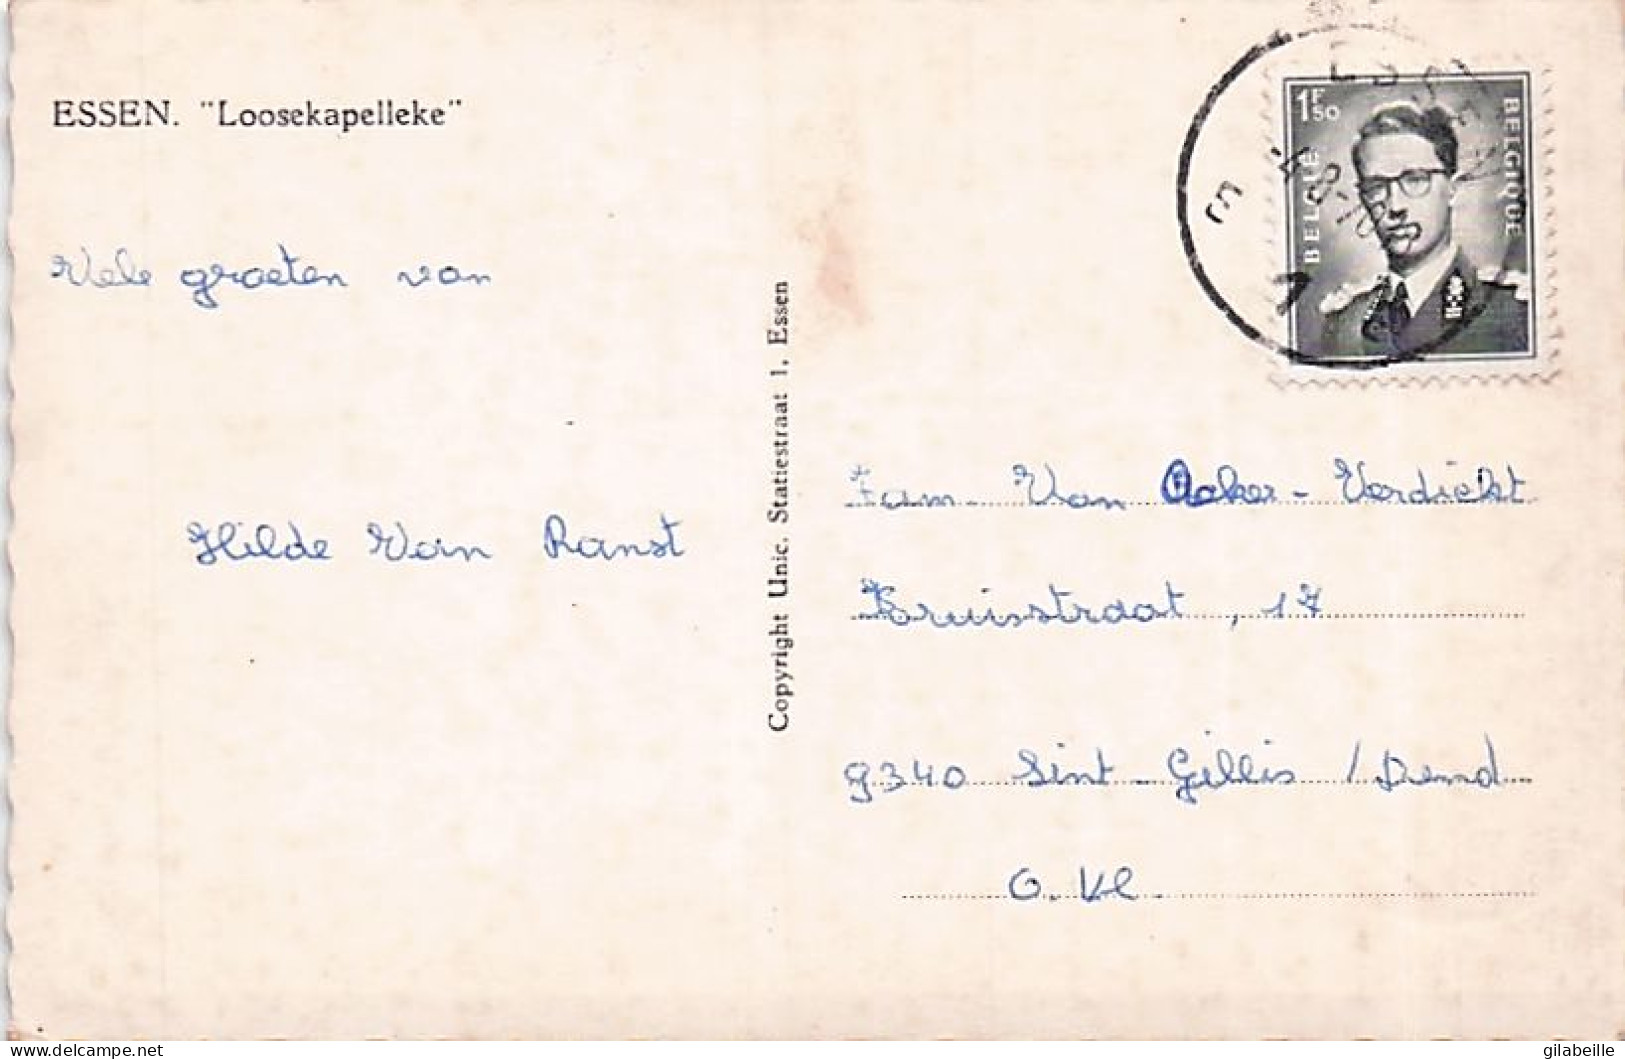 ESSEN. "Loosekapelleke"
Vele groeten van
Hilde Van Ranst
Copyright Unic. Statiestraat 1, Essen
1F50
BELGIË
BELGIQUE
ESSEN
Fam. Van Acker - Verdickt
Kruisstraat, 17
9340 Sint-Gillis / Dend
O. Vl.
delcampe.net
gilabeille